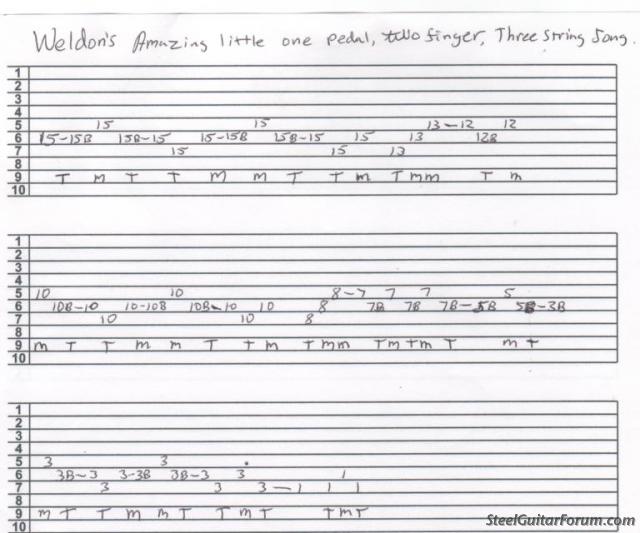 Weldon's Amazing little one pedal, two finger, Three String Song.
1
2
3
4
5 15 15 13-12 12
6 15-15B 15B-15 15-15B 15B-15 15 13 12B
7 15 15 13
8
9 T m T T m m T T m T m m T m
10
1
2
3
4
5 10 10 8-7 7 7 5
6 10B-10 10-10B 10B-10 10 8 7B 7B 7B-5B 5B-3B
7 10 10 8
8
9 m T T m m T T m T m m T m T m T m T
10
1
2
3
4
5 3 3
6 3B-3 3-3B 3B-3 3 1
7 3 3 3-1 1 1
8
9 m T T m m T T m T T m T
10
SteelGuitarForum.com